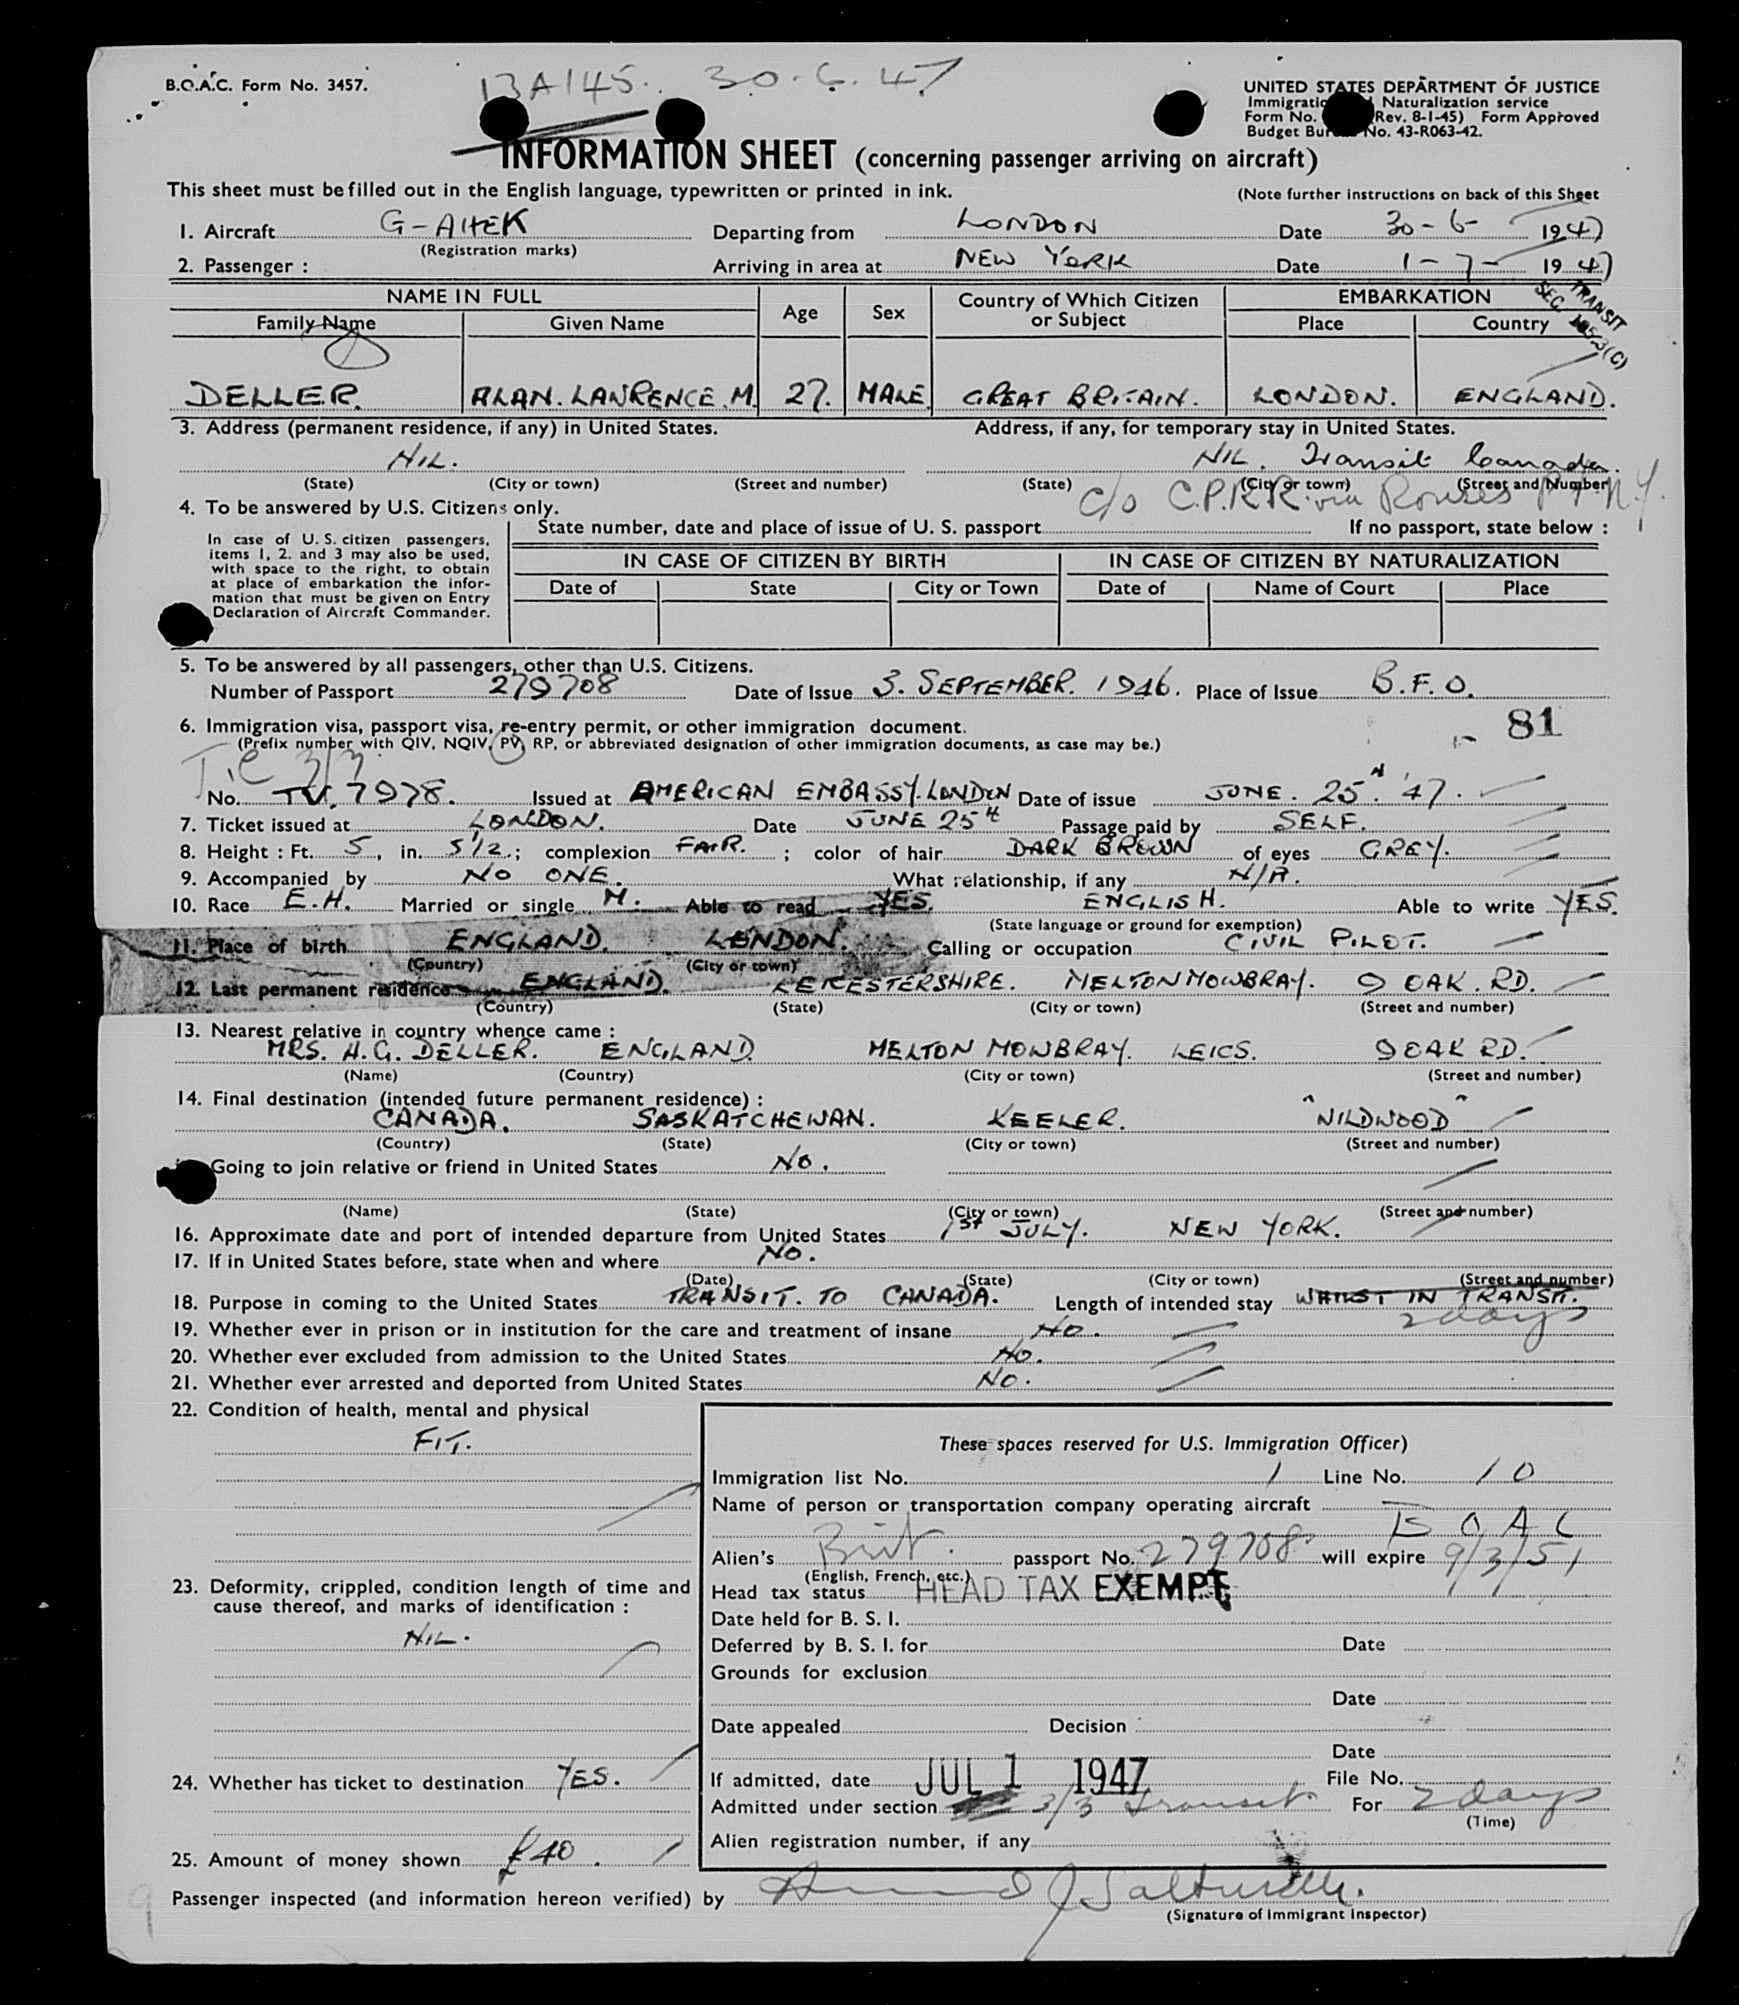 B.O.A.C. Form No. 3457.
BA145. 30.6.47
UNITED STATES DEPARTMENT OF JUSTICE
Naturalization service
Form No. (Rev. 8-1-45) Form Approved
Budget No. 43-R063-42.
INFORMATION SHEET (concerning passenger arriving on aircraft)
This sheet must be filled out in the English language, typewritten or printed in ink.
(Note further instructions on back of this Sheet
1. Aircraft G-AHEK Departing from LONDON Date 30-6- 1947
(Registration marks)
2. Passenger : Arriving in area at NEW YORK Date 1-7- 1947
TRANSIT
SEC.
NAME IN FULL Age Sex Country of Which Citizen or Subject EMBARKATION
Family Name Given Name Place Country
DELLER. ALAN. LAWRENCE. M. 27. MALE. GREAT BRITAIN. LONDON. ENGLAND.
3. Address (permanent residence, if any) in United States. Address, if any, for temporary stay in United States.
NIL. NIL. Transit Canada.
(State) (City or town) (Street and number) (State) (City or town) (Street and Number)
c/o C.P.R.R. via Rouses Pt N.Y.
4. To be answered by U.S. Citizens only.
State number, date and place of issue of U. S. passport If no passport, state below :
In case of U. S. citizen passengers,
items 1, 2. and 3 may also be used,
with space to the right, to obtain
at place of embarkation the infor-
mation that must be given on Entry
Declaration of Aircraft Commander.
IN CASE OF CITIZEN BY BIRTH IN CASE OF CITIZEN BY NATURALIZATION
Date of State City or Town Date of Name of Court Place
5. To be answered by all passengers, other than U.S. Citizens.
Number of Passport 279708 Date of Issue 3. SEPTEMBER. 1946. Place of Issue B.F.O.
6. Immigration visa, passport visa, re-entry permit, or other immigration document.
81
(Prefix number with QIV, NQIV, PV, RP, or abbreviated designation of other immigration documents, as case may be.)
T.C 3/3
No. TV. 7978. Issued at AMERICAN EMBASSY. LONDON Date of issue JUNE. 25th. '47.
7. Ticket issued at LONDON. Date JUNE 25th Passage paid by SELF.
8. Height : Ft. 5, in. 5 1/2.; complexion FAIR. ; color of hair DARK BROWN of eyes GREY.
9. Accompanied by NO ONE. What relationship, if any N/A.
10. Race E.H. Married or single M. Able to read YES. ENGLISH. Able to write YES.
(State language or ground for exemption)
11. Place of birth ENGLAND. LONDON. Calling or occupation CIVIL PILOT.
(Country) (City or town)
12. Last permanent residence ENGLAND. LEICESTERSHIRE. MELTON MOWBRAY. 9 OAK. RD.
(Country) (State) (City or town) (Street and number)
13. Nearest relative in country whence came :
MRS. H.G. DELLER. ENGLAND. MELTON MOWBRAY. LEICS. 9 OAK RD.
(Name) (Country) (City or town) (Street and number)
14. Final destination (intended future permanent residence) :
CANADA. SASKATCHEWAN. KEELER. "WILDWOOD"
(Country) (State) (City or town) (Street and number)
Going to join relative or friend in United States NO.
(Name) (State) (City or town) (Street and number)
16. Approximate date and port of intended departure from United States 1st JULY. NEW YORK.
17. If in United States before, state when and where NO.
(Date) (State) (City or town) (Street and number)
18. Purpose in coming to the United States TRANSIT. TO CANADA. Length of intended stay WHILST IN TRANSIT.
2 days
19. Whether ever in prison or in institution for the care and treatment of insane NO.
20. Whether ever excluded from admission to the United States NO.
21. Whether ever arrested and deported from United States NO.
22. Condition of health, mental and physical
FIT.
23. Deformity, crippled, condition length of time and
cause thereof, and marks of identification :
NIL.
24. Whether has ticket to destination YES.
25. Amount of money shown £40.
These spaces reserved for U.S. Immigration Officer)
Immigration list No. 1 Line No. 10
Name of person or transportation company operating aircraft
B O A C
Alien's Brit. passport No. 279708 will expire 9/3/51
(English, French, etc.)
Head tax status HEAD TAX EXEMPT
Date held for B. S. I.
Deferred by B. S. I. for Date
Grounds for exclusion
Date
Date appealed Decision
Date
If admitted, date JUL 1 1947 File No.
Admitted under section 3/3 Transit For 2 days
(Time)
Alien registration number, if any
Passenger inspected (and information hereon verified) by
(Signature of Immigrant Inspector)
9